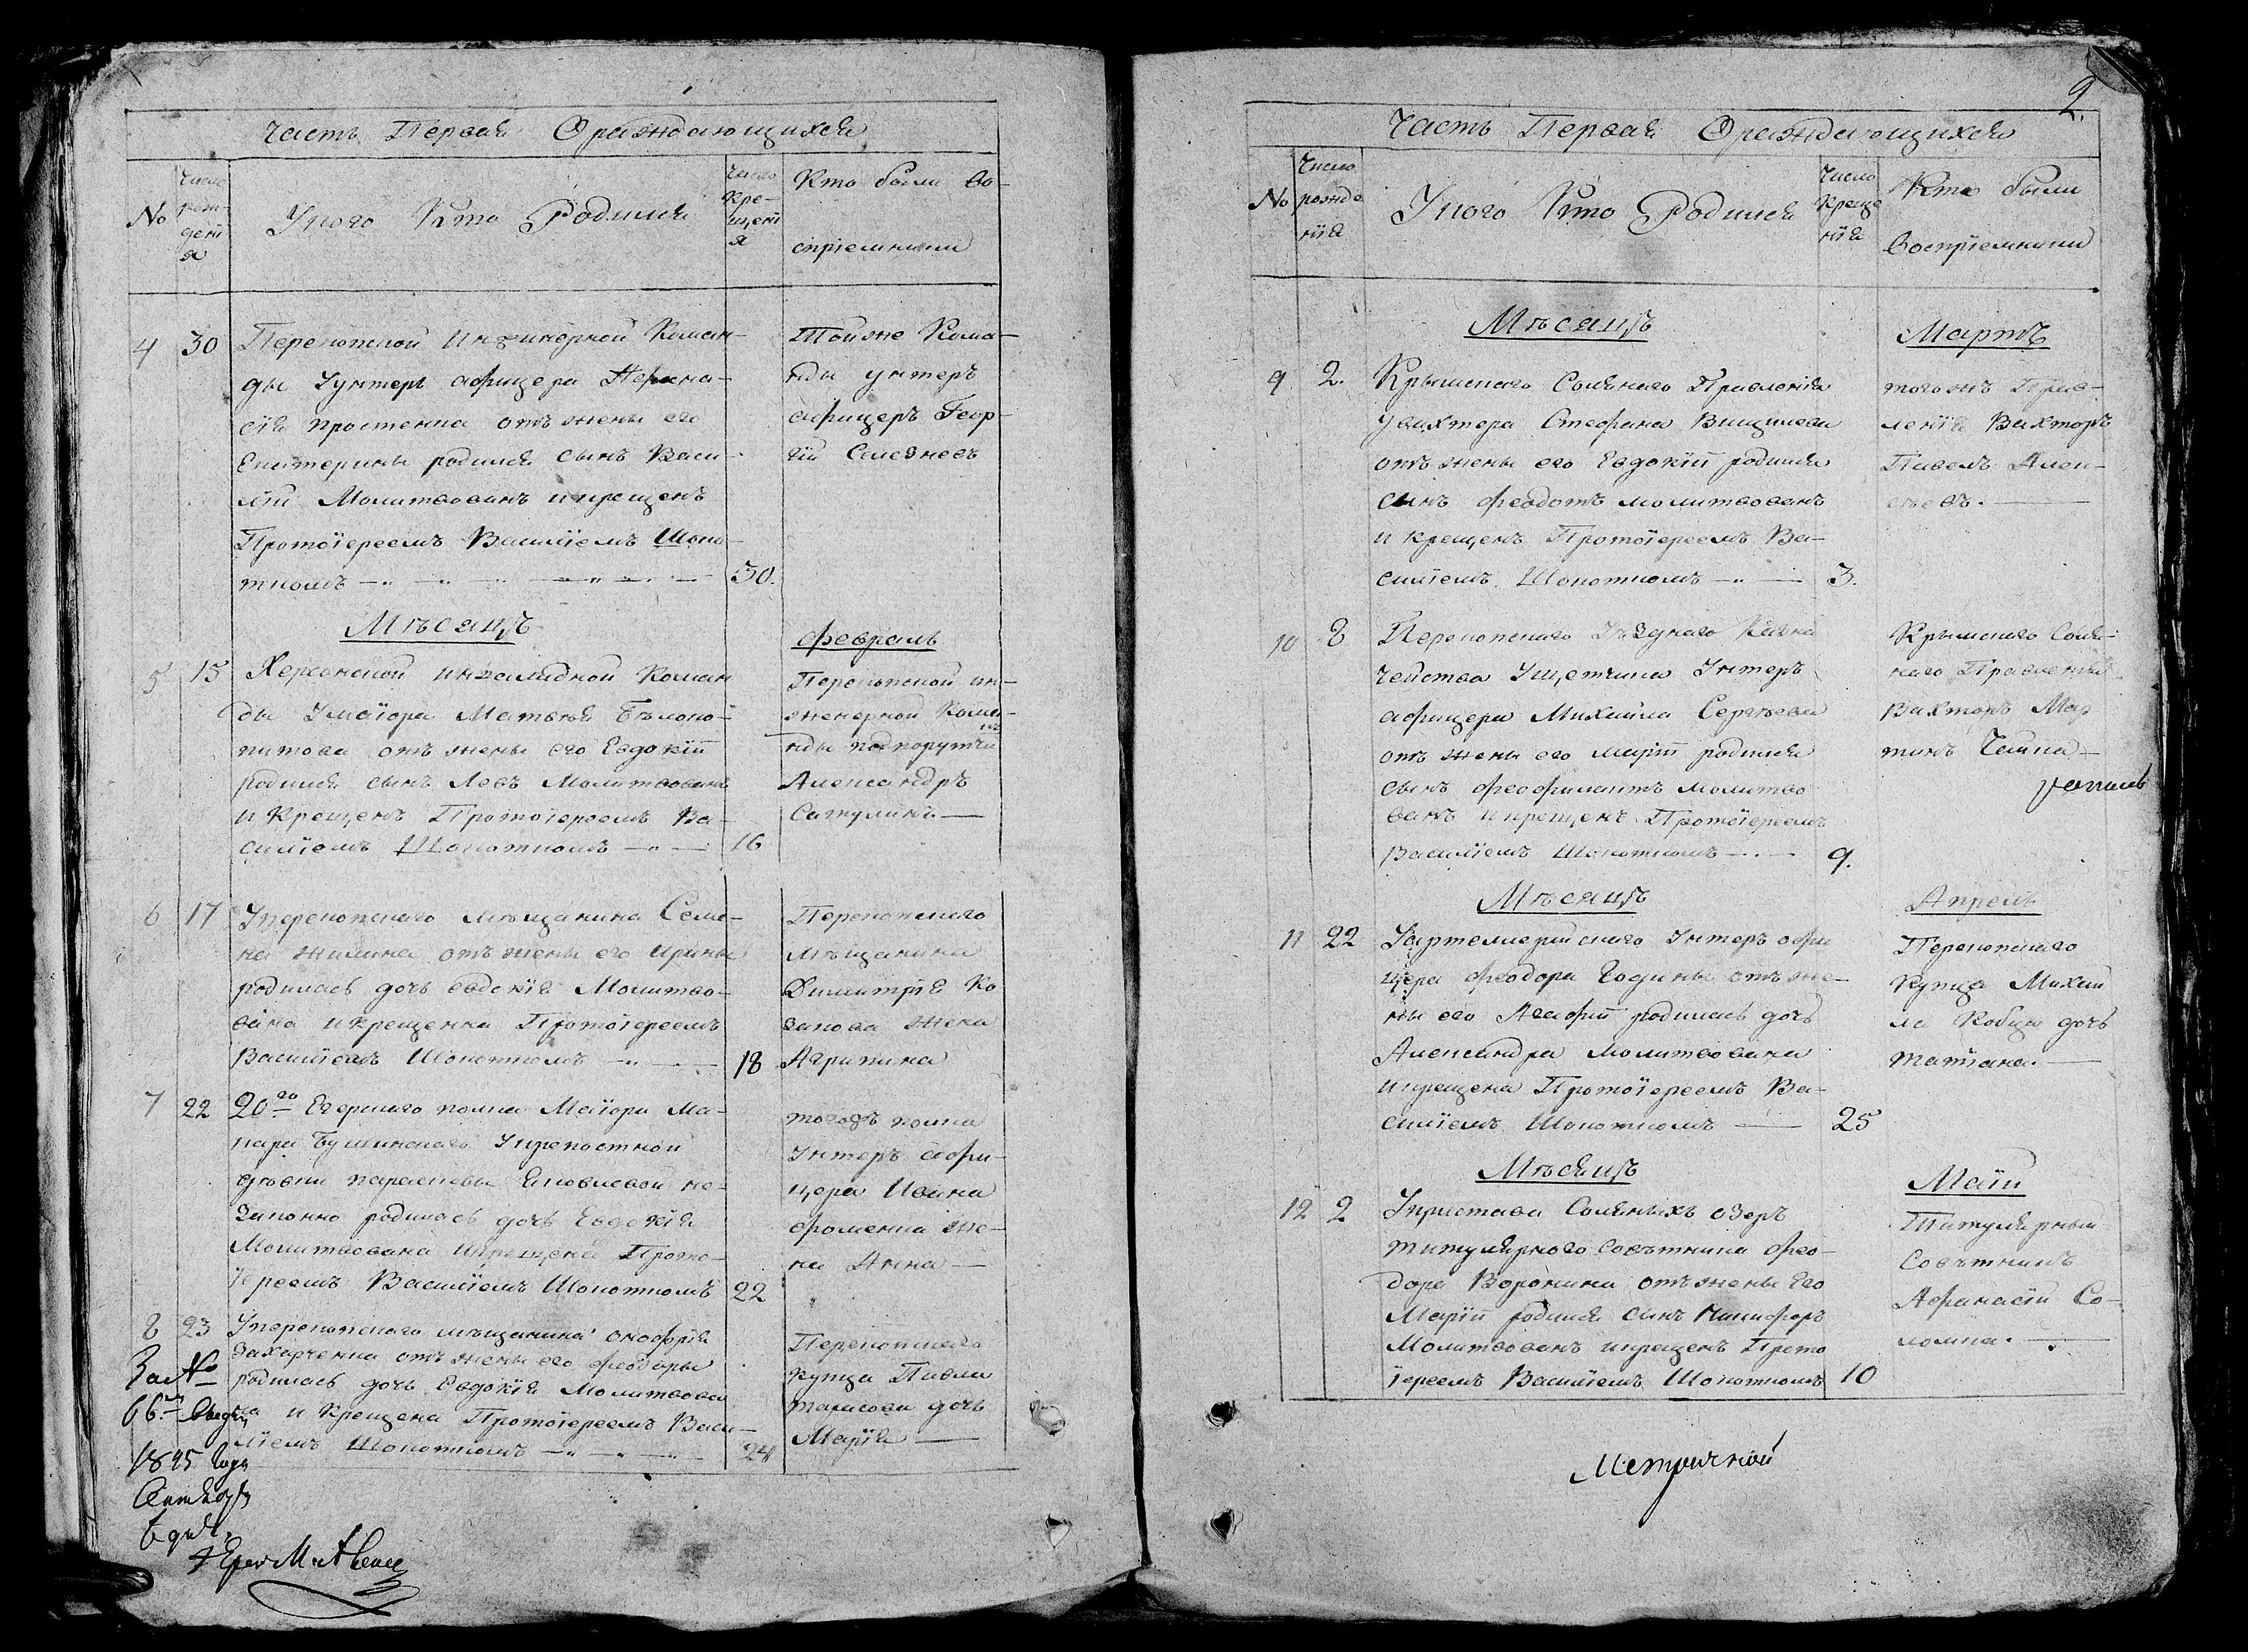 Часть Первая Ораждающихся
№
Число рож-дені я
Укого Кто Родился
Число Кре-щені я
Кто были во-
спріемники
4 30 Перекопской Инжинерной Коман-
ды Уунтеръ афицера
сія Простенка отъ жены его
Екатерины родился сынъ Васи-
лій Молитвованъ икрещенъ
Протоіереемъ Василіемъ Шопо-
ткомъ 30.
Тойже Кома-
нды унтеръ
афицеръ Геор-
гій Селезневъ
Мѣсяцъ Февраль
5 15 Херсонской инвалидной Коман
ды Умаіора Матвѣя Бѣлоко-
питова отъ жены его Евдокіи
родился сынъ Левъ Молитвованъ
и Крещенъ Протоіереемъ Ва-
силіемъ Шопоткомъ 16
Перекопской ин-
женерной Кома-
нды подпорутчикъ
Александръ
Сатулинъ
6 17 Уперекопскаго мѣщанина Семе-
на Жилина отъ жены его Ирины
родилась дочь евдокія Молитво-
вана икрещенна Протоіереемъ
Василіемъ Шопоткомъ 18
Перекопскаго
мѣщанина
Димитрія Ко
закова жена
Агрипина
7 22 20го Егерскаго полка Маіора Ма-
кара Бушинскаго Укрепостной
дѣвки параскевы Яковлевой не-
законно родилась дочь Евдокія
Молитвована икрещена Прото-
іереемъ Василіемъ Шопоткомъ 22
тогожъ полка
Унтеръ афи-
цера Ивана
фроменка же-
на Анна
8 23 Уперекопскаго мѣщанина онофрія
Захарченка отъ жены его феодоры
родилась дочь Евдокія Молитвова
на и Крещена Протоіереемъ Васи-
ліемъ Шопоткомъ 24
Перекопскаго
купца Павла
Тарасова дочь
Марія
За №
66.
1895 Года

2.
Часть Первая Ораждающихся
№
Число рожде нія
Укого Кто Родился
Число Креще нія
Кто были
Воспріемники
Мѣсяцъ Мартъ
9 2. Крымскаго Солянаго Правленія
Увахтера Стефана
отъ жены его Евдокіи родился
сынъ феодотъ молитвованъ
и крещенъ Протоіереемъ Ва-
силіемъ Шопоткомъ 3.
тогожъ Прав-
ленія Вахторъ
Павелъ Алек-
сѣевъ.
10 8 Перекопскаго Уѣзднаго Казна
чейства Ущетчика Унтеръ
афицера Михайла Сергѣева
отъ жены его маріи родился
сынъ феофилактъ молитво
ванъ икрещенъ Протоіереемъ
Василіемъ Шопоткомъ 9.
Крымскаго Соля-
наго Правленія
Вахторъ Мар
тинъ Чайка-

Мѣсяцъ Апрель
11 22 Уартелерійскаго Унтеръ афи
цера феодора Годины отъ же-
ны его Агафіи родилась дочь
Александра молитвована
икрещена Протоіереемъ Ва-
силіемъ Шопоткомъ 25
Перекопскаго
Купца Михай
ла Кобца дочь
Татіана.
Мѣсяцъ Маій
12 2 Упристава Соляныхъ озеръ
титулярнаго советника фео-
дора Воронина отъ жены Его
Маріи родился сынъ Никифоръ
Молитвованъ икрещенъ Прото
іереемъ Василіемъ Шопоткомъ 10
Титулярный
Советникъ
Афанасій Со-
ломка.
Метричной